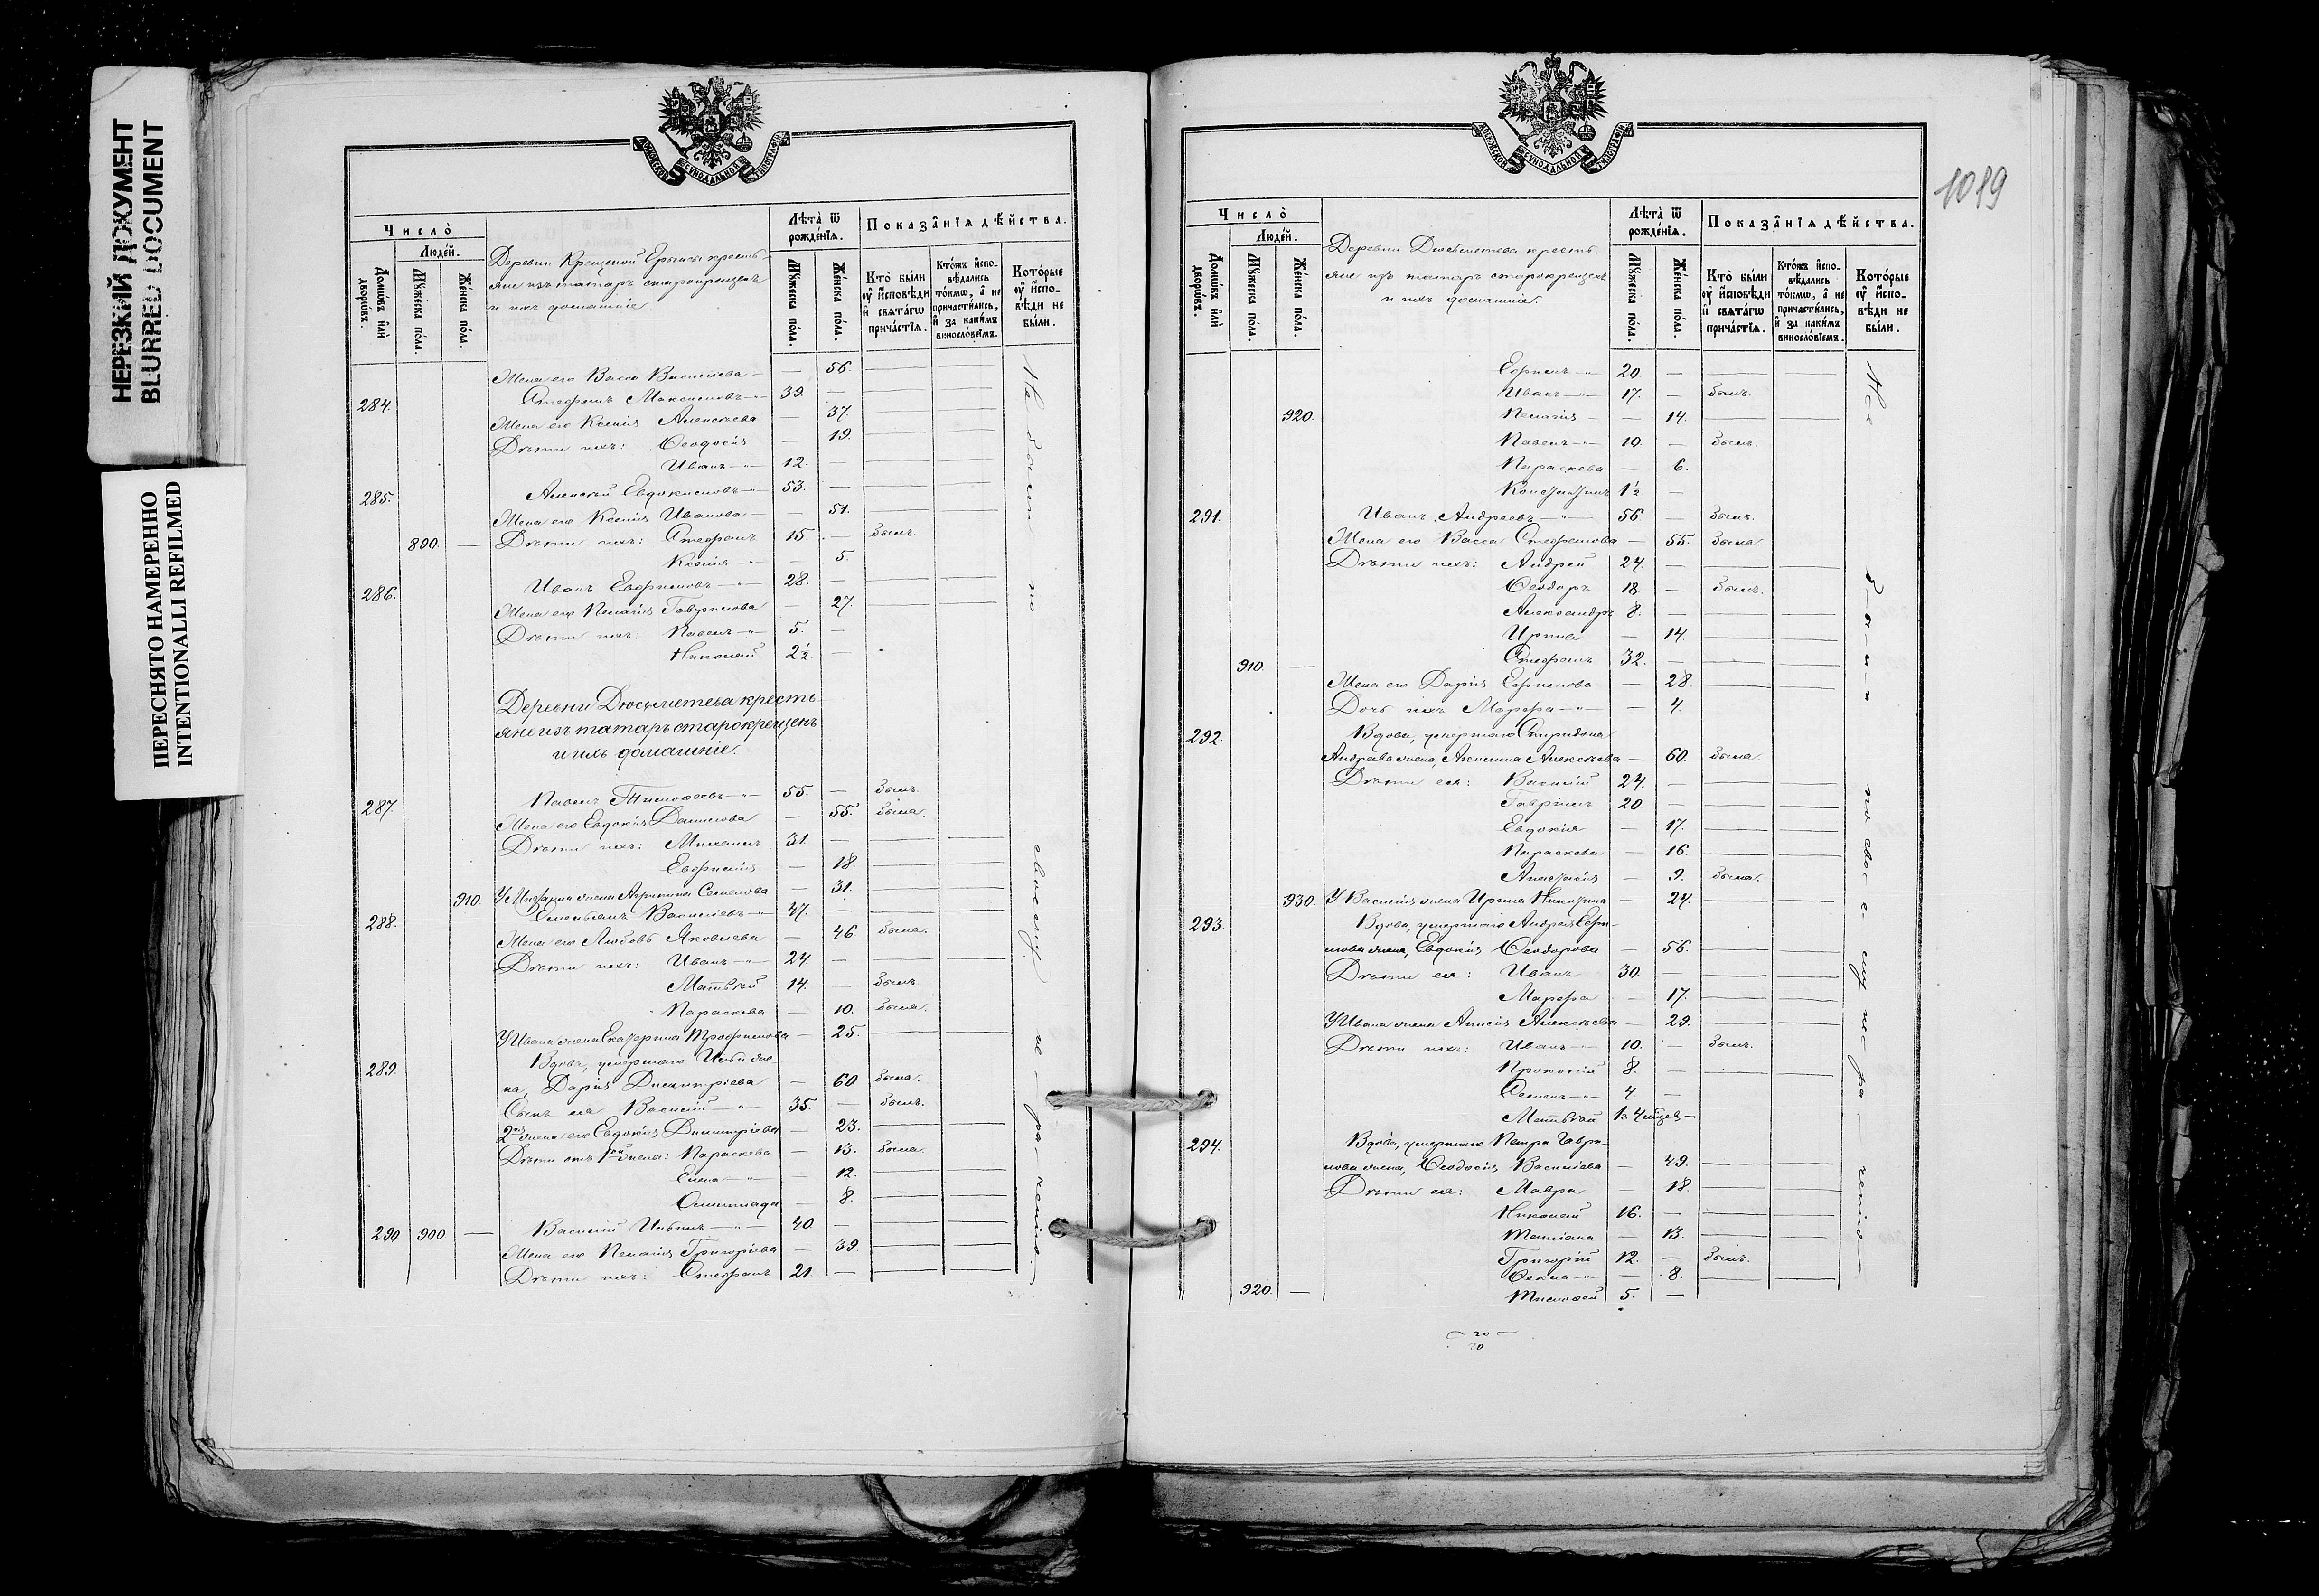 НЕРЕЗКИЙ ДОКУМЕНТ
BLURRED DOCUMENT
ПЕРЕСНЯТО НАМЕРЕННО
INTENTIONALLI REFILMED
МОСКОВСКОЙ СУНОДАЛЬНОЙ ТИПОГРАФІИ
Число̀
Люде́й.
Домѡ́въ и҆лѝ дворѡ́въ.
Мꙋ́жеска по́ла.
Же́нска по́ла.
Деревни Крещеной Ерыксы кресть-
яне изъ татаръ старокрещенъ
и ихъ домашніе.
Лѣта̀ ѿ рожде́нїѧ.
Мꙋ́жеска по́ла.
Же́нска по́ла.
Показа̑нїѧ дѣ́йства.
Кто̀ бы́ли ᲂу҆ и҆́сповѣди и҆ свѧта́гѡ прича́стїѧ.
Кто́жъ и҆спо-вѣ́дались то́кмѡ, а҆ не причасти́лись, и҆ за каки́мъ виносло́вїемъ.
Кото́рые ᲂу҆ и҆спо-вѣди не бы́ли.
Жена его Васса Васильева — 56.
284. Стефанъ Максимовъ 39.
Жена его Ксенія Алексѣева — 37.
Дѣти ихъ: Ѳеодосія — 19.
Иванъ 12. —
285. Алексѣй Евдокимовъ 53. —
Жена его Ксенія Иванова — 51.
890. — Дѣти ихъ: Стефанъ 15. — Былъ.
Ксенія — 5.
286. Иванъ Евфимовъ 28. —
Жена его Пелагія Гаврилова — 27.
Дѣти ихъ: Павелъ 5. —
Николай 2½ —
Деревни Дюсьметева кресть-
яне изъ татаръ старокрещенъ
и ихъ домашніе.
287. Павелъ Тимоѳеевъ 55. — Былъ.
Жена его Евдокія Данилова — 55. Была.
Дѣти ихъ: Михаилъ 31. —
Евфимія — 18.
910 У Михаила жена Агрипина Семенова — 31.
288. Емельянъ Васильевъ 47. —
Жена его Любовь Яковлева — 46 Была.
Дѣти ихъ: Иванъ 24. —
Матвѣй 14. — Былъ
Параскева — 10. Была.
У Ивана жена Екатерина Трофимова — 25.
289. Вдова, умершаго
на, Дарія Димитріева — 60. Была.
Сынъ ея Василій 35. — Былъ.
2ая жена его Евдокія Димитріева — 23.
Дѣти отъ 1ой жены: Параскева — 13. Была.
Елена — 12.
Олимпіада — 8.
290. 900 — Василій Ильинъ 40 —
Жена его Пелагія Григорьева — 39.
Дѣти ихъ: Стефанъ 21. —
Не были по
своему не-
ра-
1019
МОСКОВСКОЙ СУНОДАЛЬНОЙ ТИПОГРАФІИ
Число̀
Люде́й.
Домѡ́въ и҆лѝ дворѡ́въ.
Мꙋ́жеска по́ла.
Же́нска по́ла.
Деревни Дюсьметева кресть-
яне изъ татаръ старокрещенъ
и ихъ домашніе.
Лѣта̀ ѿ рожде́нїѧ.
Мꙋ́жеска по́ла.
Же́нска по́ла.
Показа̑нїѧ дѣ́йства.
Кто̀ бы́ли ᲂу҆ и҆́сповѣди и҆ свѧта́гѡ прича́стїѧ.
Кто́жъ и҆спо-вѣ́дались то́кмѡ, а҆ не причасти́лись, и҆ за каки́мъ виносло́вїемъ.
Кото́рые ᲂу҆ и҆спо-вѣди не бы́ли.
Ефремъ 20 —
Иванъ 17. — Былъ.
920. Пелагія — 14.
Павелъ 10. — Былъ.
Параскева — 6.
Константинъ 1½ —
291. Иванъ Андреевъ 56. — Былъ.
Жена его Васса Стефанова — 55. Была.
Дѣти ихъ: Андрей 24. —
Ѳеодоръ 18. — Былъ.
Александръ 8. —
Ирина — 14.
910 — Стефанъ 32. —
Жена его Дарія Ефимова — 28
Дочь ихъ Марфа — 4.
292. Вдова, умершаго Спиридона
жена, Акилина Алексѣева — 60. Была.
Дѣти ея: Василій 24. —
Гавріилъ 20 —
Евдокія — 17.
Параскева — 16.
Анастасія — 9. Была.
930. У Василія жена Ирина Никитина — 24.
293. Вдова, умершаго Андрея Ефи-
мова жена, Евдокія Ѳеодорова — 56.
Дѣти ея: Иванъ 30. —
Марфа — 17.
У Ивана жена Анисія Алексѣева — 29.
Дѣти ихъ: Иванъ 10. — Былъ.
Прокопій 8. —
Семенъ 4 —
Матвѣй —
294. Вдова, умершаго Петра Гаври-
лова жена, Ѳеодосія Васильева — 49.
Дѣти ея: Мавра — 18.
Николай 16. —
Татіана — 13.
Григорій 12. — Былъ.
Ѳекла — 8.
920. — Тимоѳей 5. —
Не
были
по своему нера-
20
20